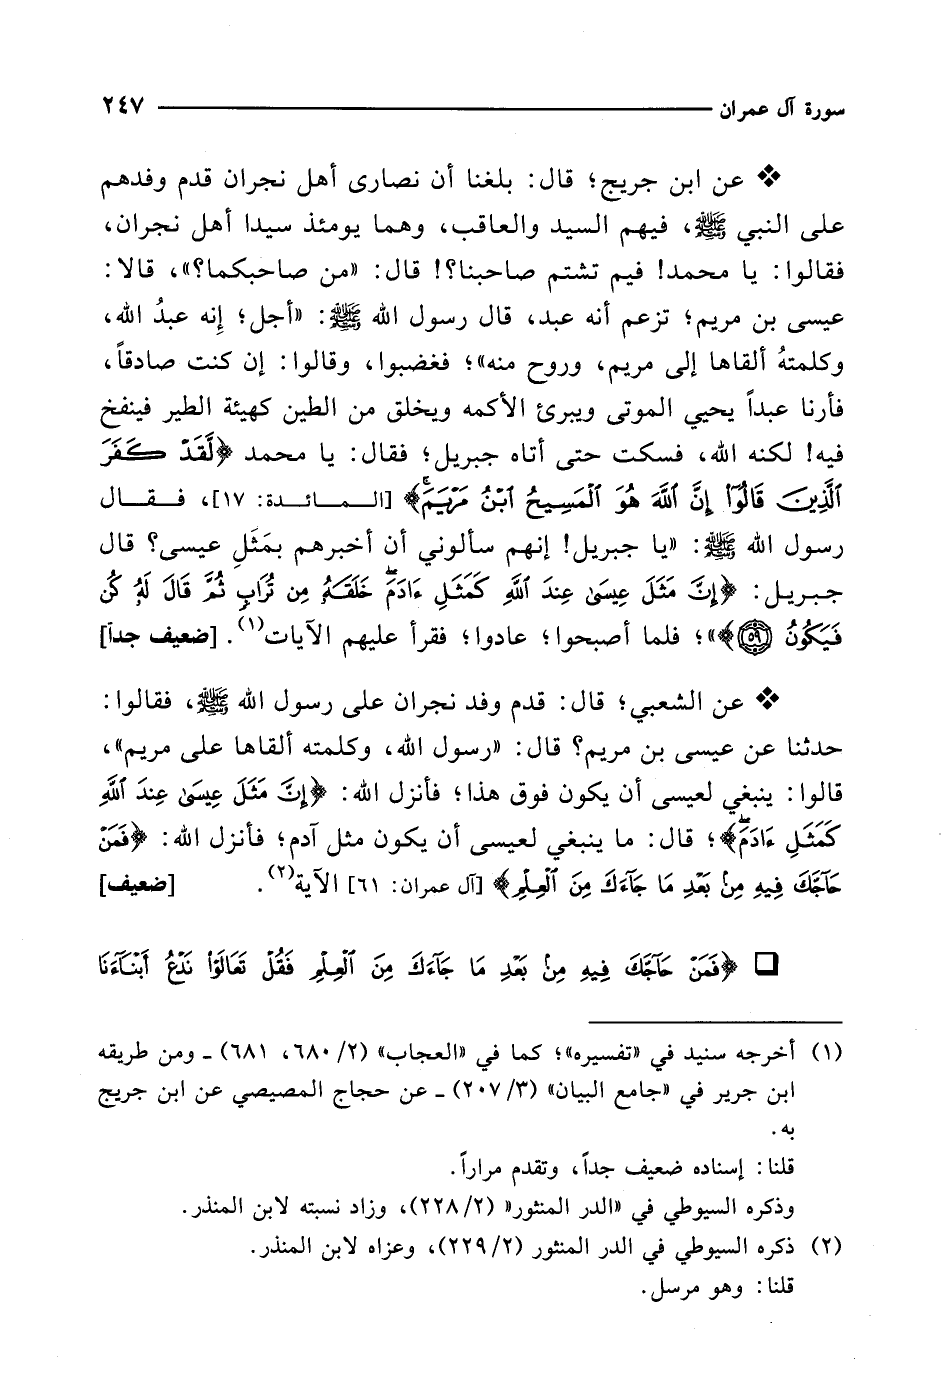 سورة آل عمران ٢٤٧
❖ عن ابن جريج؛ قال: بلغنا أن نصارى أهل نجران قدم وفدهم
على النبي ﷺ، فيهم السيد والعاقب، وهما يومئذ سيدا أهل نجران،
فقالوا: يا محمد! فيم تشتم صاحبنا؟! قال: «من صاحبكما؟»، قالا:
عيسى بن مريم؛ تزعم أنه عبد، قال رسول الله ﷺ: «أجل؛ إنه عبدُ الله،
وكلمتهُ ألقاها إلى مريم، وروح منه»؛ فغضبوا، وقالوا: إن كنت صادقاً،
فأرنا عبداً يحيي الموتى ويبرئ الأكمه ويخلق من الطين كهيئة الطير فينفخ
فيه! لكنه الله، فسكت حتى أتاه جبريل؛ فقال: يا محمد ﴿لَّقَدْ كَفَرَ
الَّذِينَ قَالُوٓا إِنَّ اللَّهَ هُوَ الْمَسِيحُ ابْنُ مَرْيَمَ﴾ [المائدة: ١٧]، فقال
رسول الله ﷺ: «يا جبريل! إنهم سألوني أن أخبرهم بمَثَلِ عيسى؟ قال
جبريل: ﴿إِنَّ مَثَلَ عِيسَىٰ عِندَ اللَّهِ كَمَثَلِ ءَادَمَ خَلَقَهُ مِن تُرَابٍ ثُمَّ قَالَ لَهُ كُن
فَيَكُونُ ۝٥٩﴾»؛ فلما أصبحوا؛ عادوا؛ فقرأ عليهم الآيات(١). [ضعيف جداً]
❖ عن الشعبي؛ قال: قدم وفد نجران على رسول الله ﷺ، فقالوا:
حدثنا عن عيسى بن مريم؟ قال: «رسول الله، وكلمته ألقاها على مريم»،
قالوا: ينبغي لعيسى أن يكون فوق هذا؛ فأنزل الله: ﴿إِنَّ مَثَلَ عِيسَىٰ عِندَ اللَّهِ
كَمَثَلِ ءَادَمَ﴾؛ قال: ما ينبغي لعيسى أن يكون مثل آدم؛ فأنزل الله: ﴿فَمَنْ
حَآجَّكَ فِيهِ مِنۢ بَعْدِ مَا جَآءَكَ مِنَ الْعِلْمِ﴾ [آل عمران: ٦١] الآية(٢). [ضعيف]
❑ ﴿فَمَنْ حَآجَّكَ فِيهِ مِنۢ بَعْدِ مَا جَآءَكَ مِنَ الْعِلْمِ فَقُلْ تَعَالَوْا نَدْعُ أَبْنَآءَنَا
(١) أخرجه سنيد في «تفسيره»؛ كما في «العجاب» (٢/ ٦٨٠، ٦٨١) ـ ومن طريقه
ابن جرير في «جامع البيان» (٣/ ٢٠٧) ـ عن حجاج المصيصي عن ابن جريج
به.
قلنا: إسناده ضعيف جداً، وتقدم مراراً.
وذكره السيوطي في «الدر المنثور» (٢/ ٢٢٨)، وزاد نسبته لابن المنذر.
(٢) ذكره السيوطي في الدر المنثور (٢/ ٢٢٩)، وعزاه لابن المنذر.
قلنا: وهو مرسل.